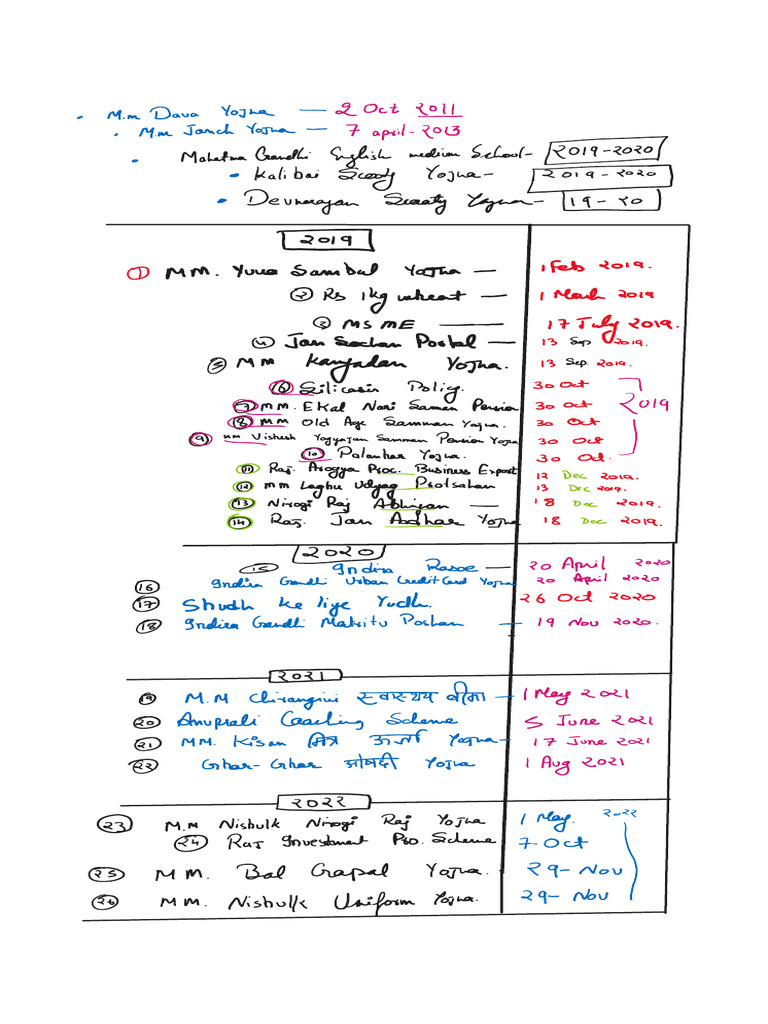 • M.m Dava Yojna — 2 Oct 2011
• M.m Janch Yojna — 7 april-2013
• Mahatma Gandhi English medium School- 2019-2020
• Kalibai Scooty Yojna- 2019-2020
• Devnarayan Scooty Yojna- 19-20
2019
① MM. Yuva Sambal Yojna — 1 Feb 2019.
② Rs 1kg wheat — 1 March 2019
③ MSME — 17 July 2019.
④ Jan Soochan Portal — 13 Sep 2019.
⑤ MM Kanyadan Yojna. 13 Sep. 2019.
⑥ Silicosis Policy. 30 Oct
⑦ MM. Ekal Nari Saman Pension 30 Oct 2019
⑧ MM Old Age Samman Yojna. 30 Oct
⑨ MM Vishesh Yogyajan Samman Pension Yojna 30 Oct
⑩ Palanhar Yojna. 30 Oct.
⑪ Raj. Arogya Proc. Business Export 12 Dec 2019.
⑫ MM Laghu Udyog Protsahan 13 Dec 2019.
⑬ Nirogi Raj Abhiyan — 18 Dec 2019.
⑭ Raj. Jan Aadhar Yojna 18 Dec 2019.
2020
15 Indira Rasoe — 20 April 2020
16 Indira Gandhi Urban Credit Card Yojna 20 April 2020
17 Shudh ke liye Yudh. 26 Oct 2020
18 Indira Gandhi Matritu Poshan — 19 Nov 2020.
2021
19 M.M Chirangivi स्वास्थय बीमा - 1 May 2021
20 Anuprati Coaching Scheme 5 June 2021
21 MM. Kisan मित्र ऊर्जा Yojna- 17 June 2021
22 Ghar-Ghar ओषदी Yojna 1 Aug 2021
2022
23 M.M Nishulk Nirogi Raj Yojna 1 May. 2022
24 Raj Investment Pro. Scheme 7 Oct
25 MM. Bal Gopal Yojna. 29-Nov
26 MM. Nishulk Uniform Yojna. 29-Nov